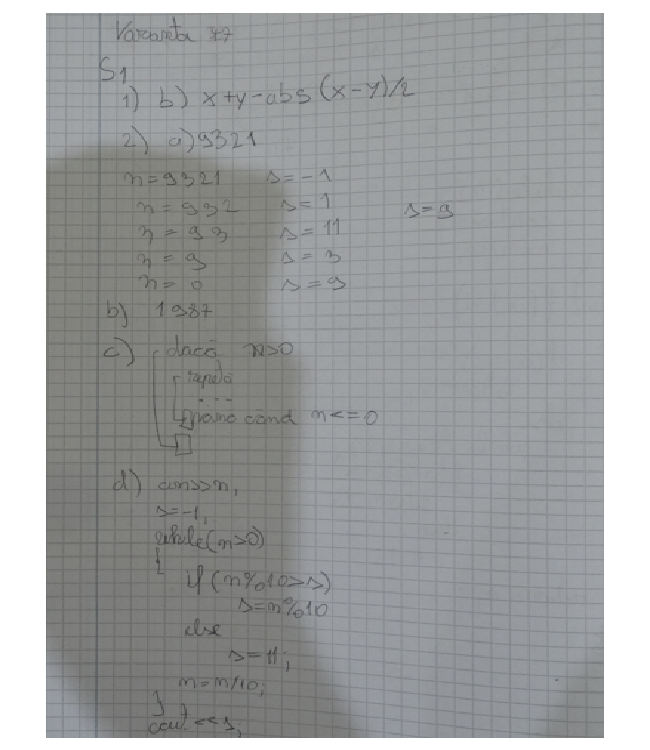 Varianta 77
S1
1) b) x+y-abs(x-y)/2
2) a) 9321
n=9321 s=-1
n=932 s=1
n=93 s=11 s=9
n=9 s=3
n=0 s=9
b) 1987
c) dacă n>0
repetă
...
până cand n<=0
d) cin>>n;
s=-1;
while(n>0)
{
if(n%10>s)
s=n%10
else
s=11;
n=n/10;
}
cout<<s;